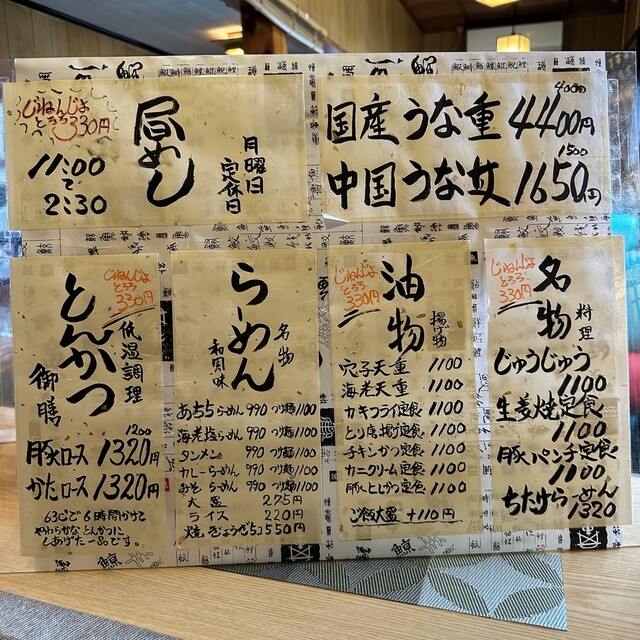 じねんじょ
とろろ330円
昼めし
11:00
で
2:30
月曜日
定休日
4000
国産うな重4400円
1500
中国うな丼1650円
じねんじょ
とろろ
330円
とんかつ
低温調理
御膳
1200
豚ロース1320円
かたロース1320円
63℃で6時間かけて
やわらかなとんかつに
しあげた一品です。
らーめん
名物
和風味
らーめん 990 つけ麺1100
海老塩らーめん 990 つけ麺1100
タンメン 990 つけ麺1100
カレーらーめん 990 つけ麺1100
らーめん 990 つけ麺1100
大盛 275円
ライス 220円
焼ぎょうざ5コ550円
じねんじょ
とろろ
330円
油物
揚げ物
穴子天重 1100
海老天重 1100
カキフライ定食 1100
とり唐揚げ定食 1100
チキンかつ定食 1100
カニクリーム定食 1100
豚ひとじかつ定食 1100
ご飯大盛 +110円
じねんじょ
とろろ
330円
名物
料理
じゅうじゅう
1100
生姜焼定食
1100
豚パンチ定食
1100
ちたけらーめん
1320